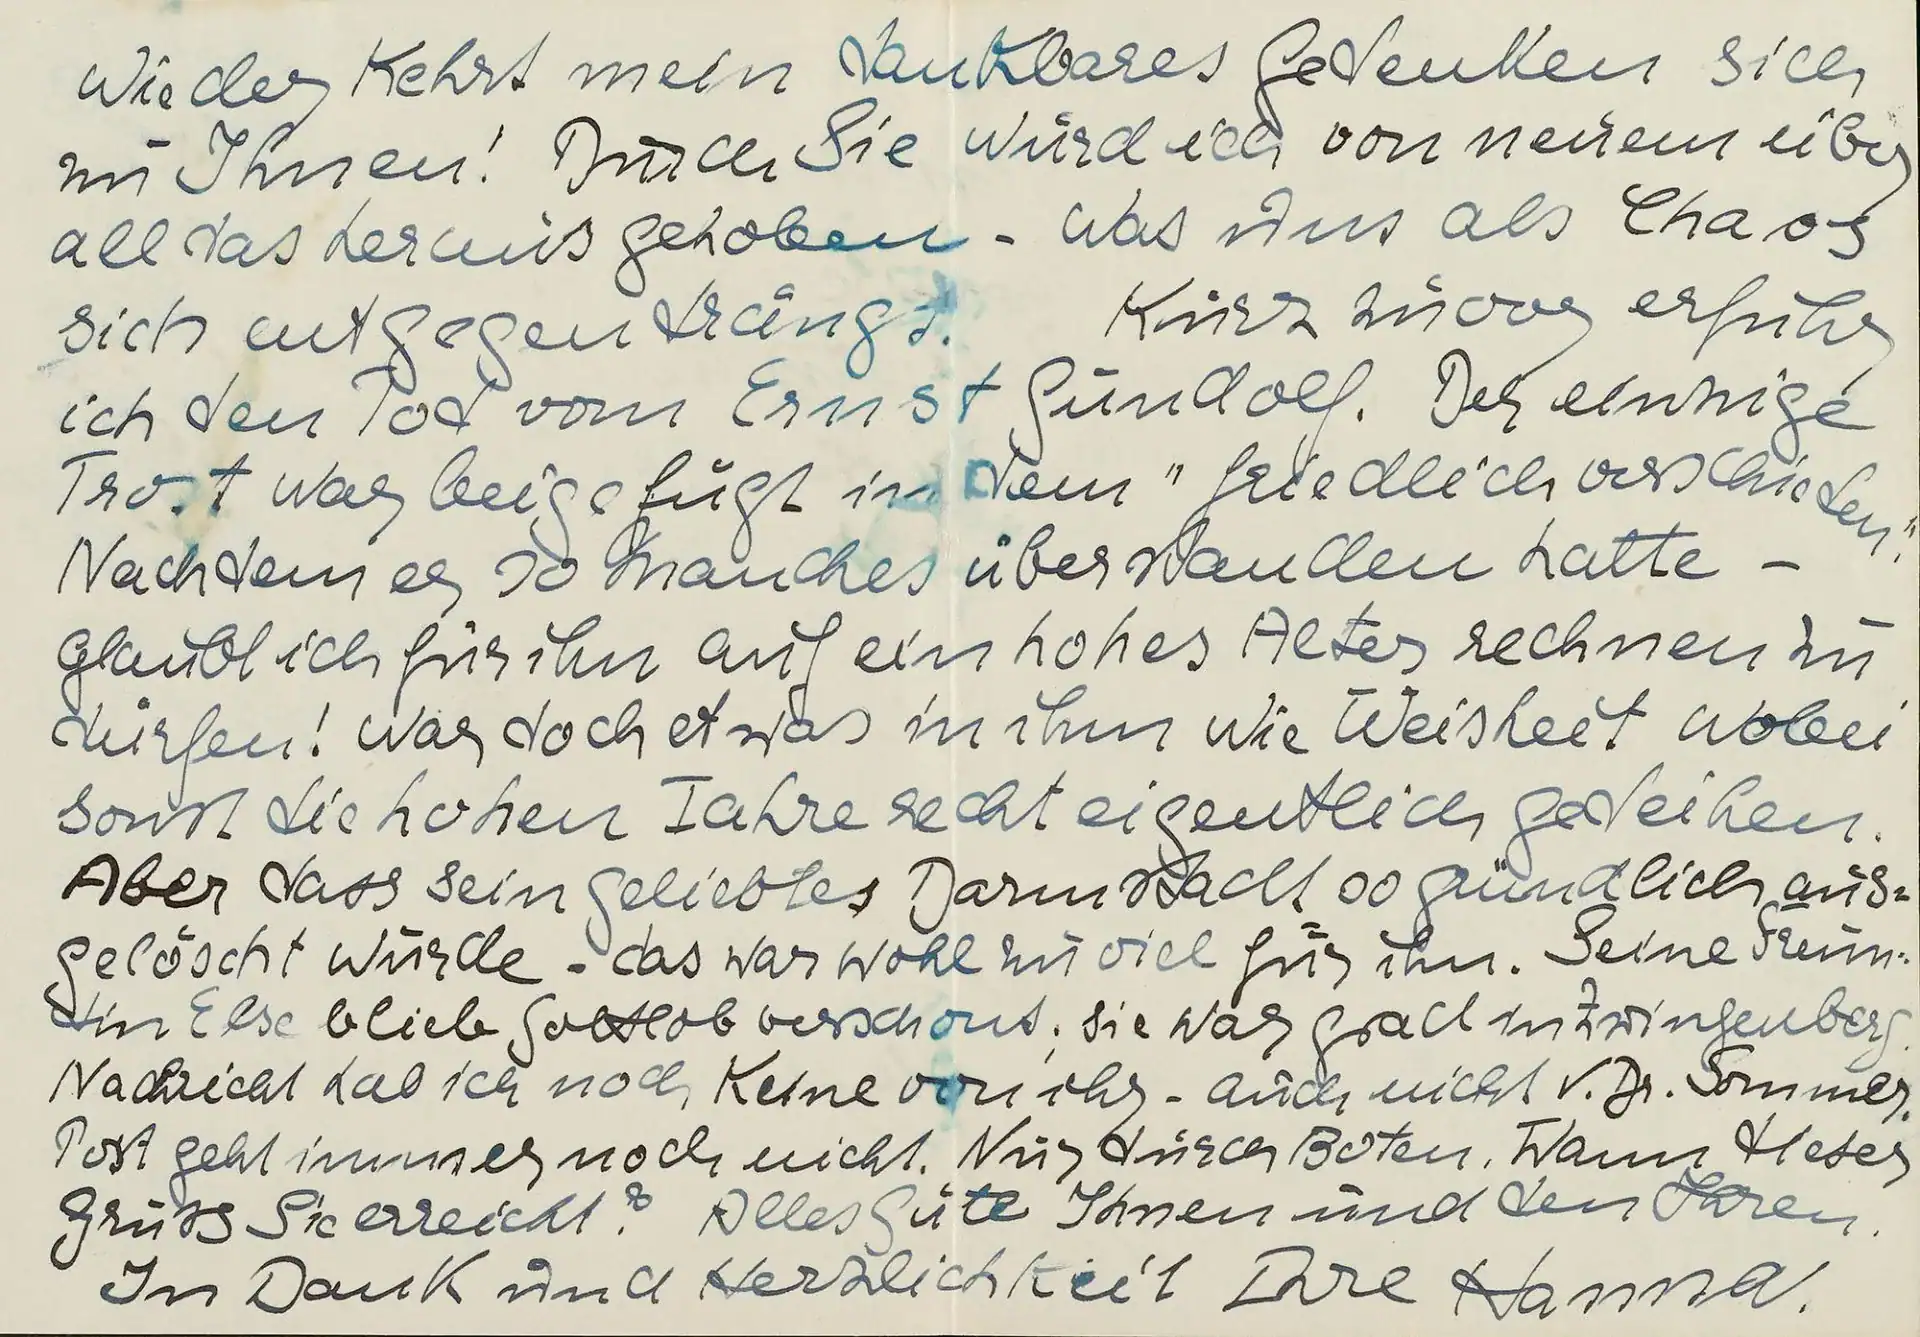 Wieder kehrt mein dankbares Gedenken sich
zu Ihnen! Durch Sie wurd ich von neuem über
all das herausgehoben - was uns als Chaos
sich entgegendrängt. Kurz zuvor erfuhr
ich den Tod vom Ernst Gundolf. Der einzige
Trost war beigefügt in dem "friedlich verschieden".
Nachdem er so manches überstanden hatte -
glaubt ich für ihn auf ein hohes Alter rechnen zu
dürfen! War doch etwas in ihm wie Weisheit wobei
sonst die hohen Jahre recht eigentlich gedeihen.
Aber dass sein geliebtes Darmstadt so gründlich aus=
gelöscht wurde - das war wohl zu viel für ihn. Seine Freun-
din Else blieb Gottlob verschont; sie war grad in Zwingenberg.
Nachricht hab ich noch keine von ihr - auch nicht v. Dr. Sommer.
Post geht immer noch nicht. Nur durch Boten. Wann dieser
Gruss Sie erreicht? Alles Gute Ihnen und den Ihren.
In Dank und Herzlichkeit Ihre Hanna.